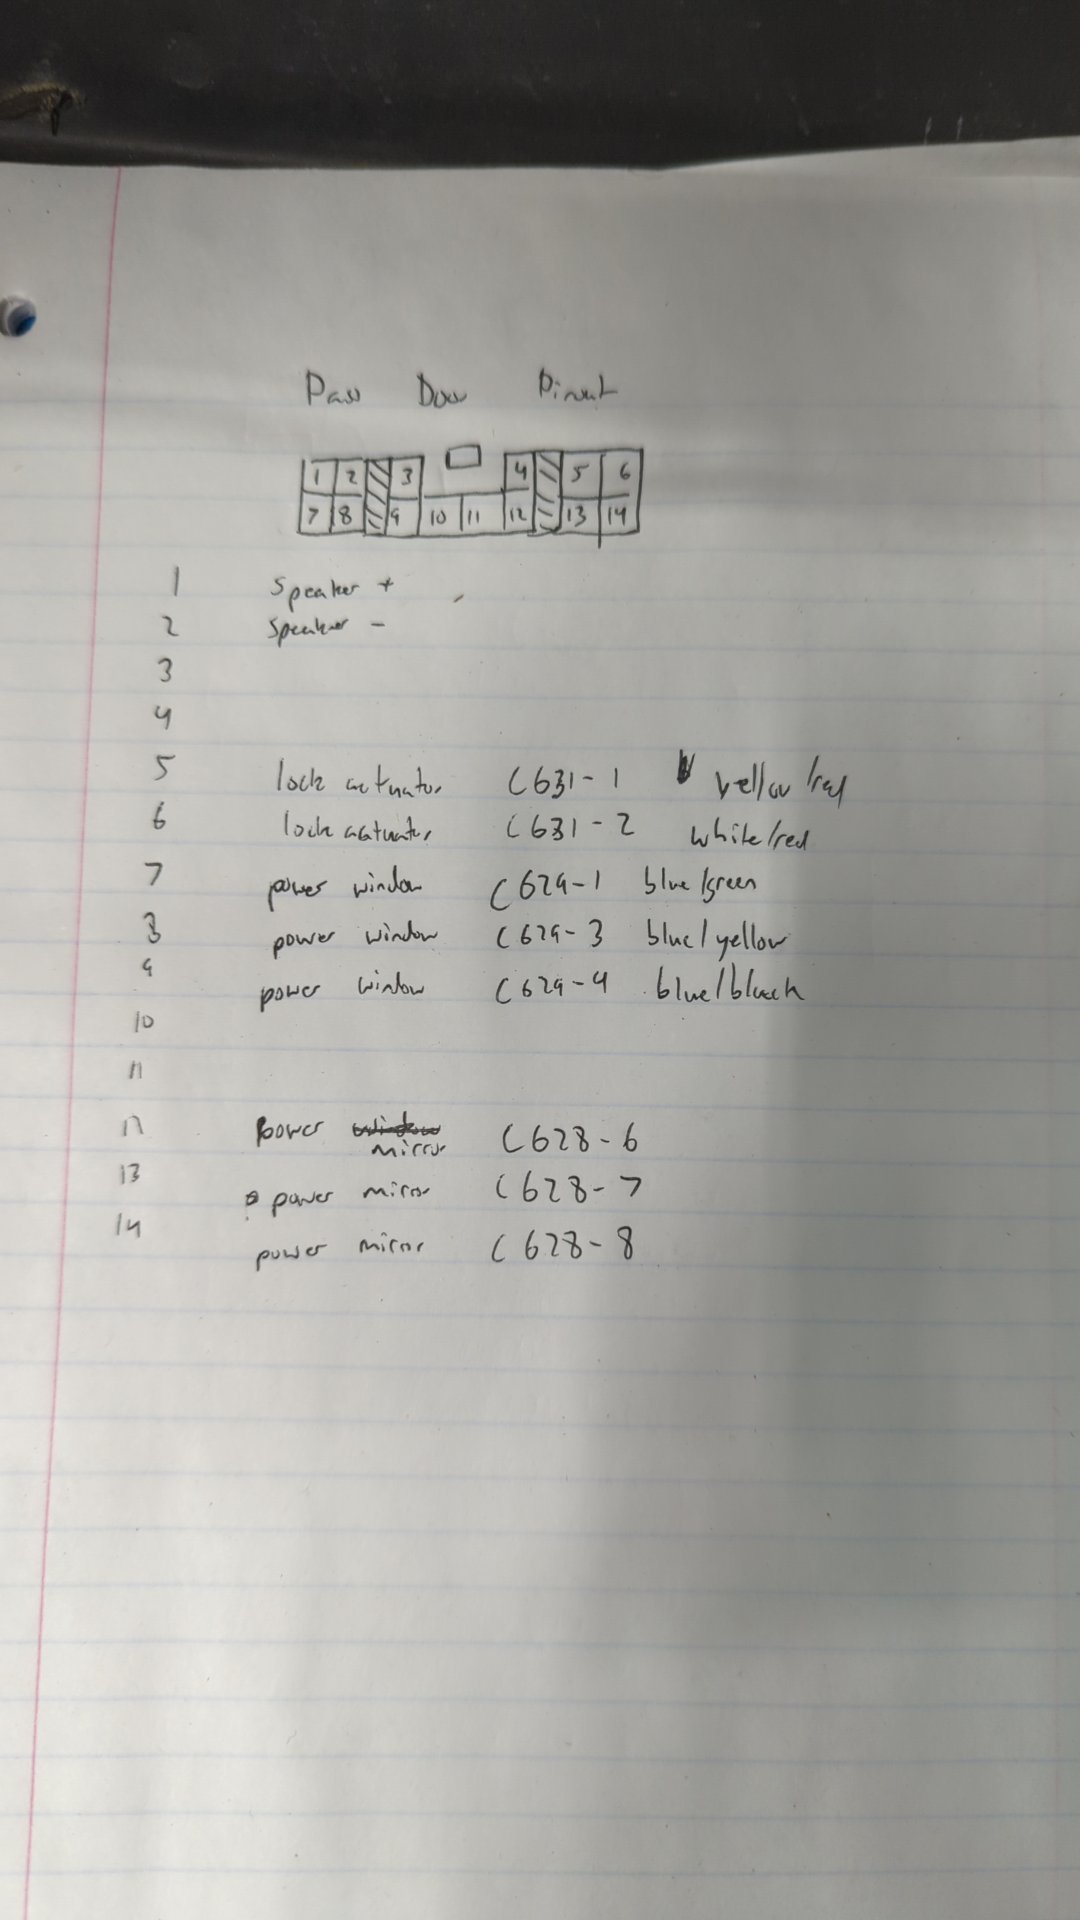 Pass Door Pinout
1 2 3 4 5 6
7 8 9 10 11 12 13 14
1 Speaker +
2 Speaker -
3
4
5 lock actuator C631-1 yellow/red
6 lock actuator C631-2 white/red
7 power window C629-1 blue/green
8 power window C629-3 blue/yellow
9 power window C629-4 blue/black
10
11
12 power window mirror C628-6
13 power mirror C628-7
14 power mirror C628-8